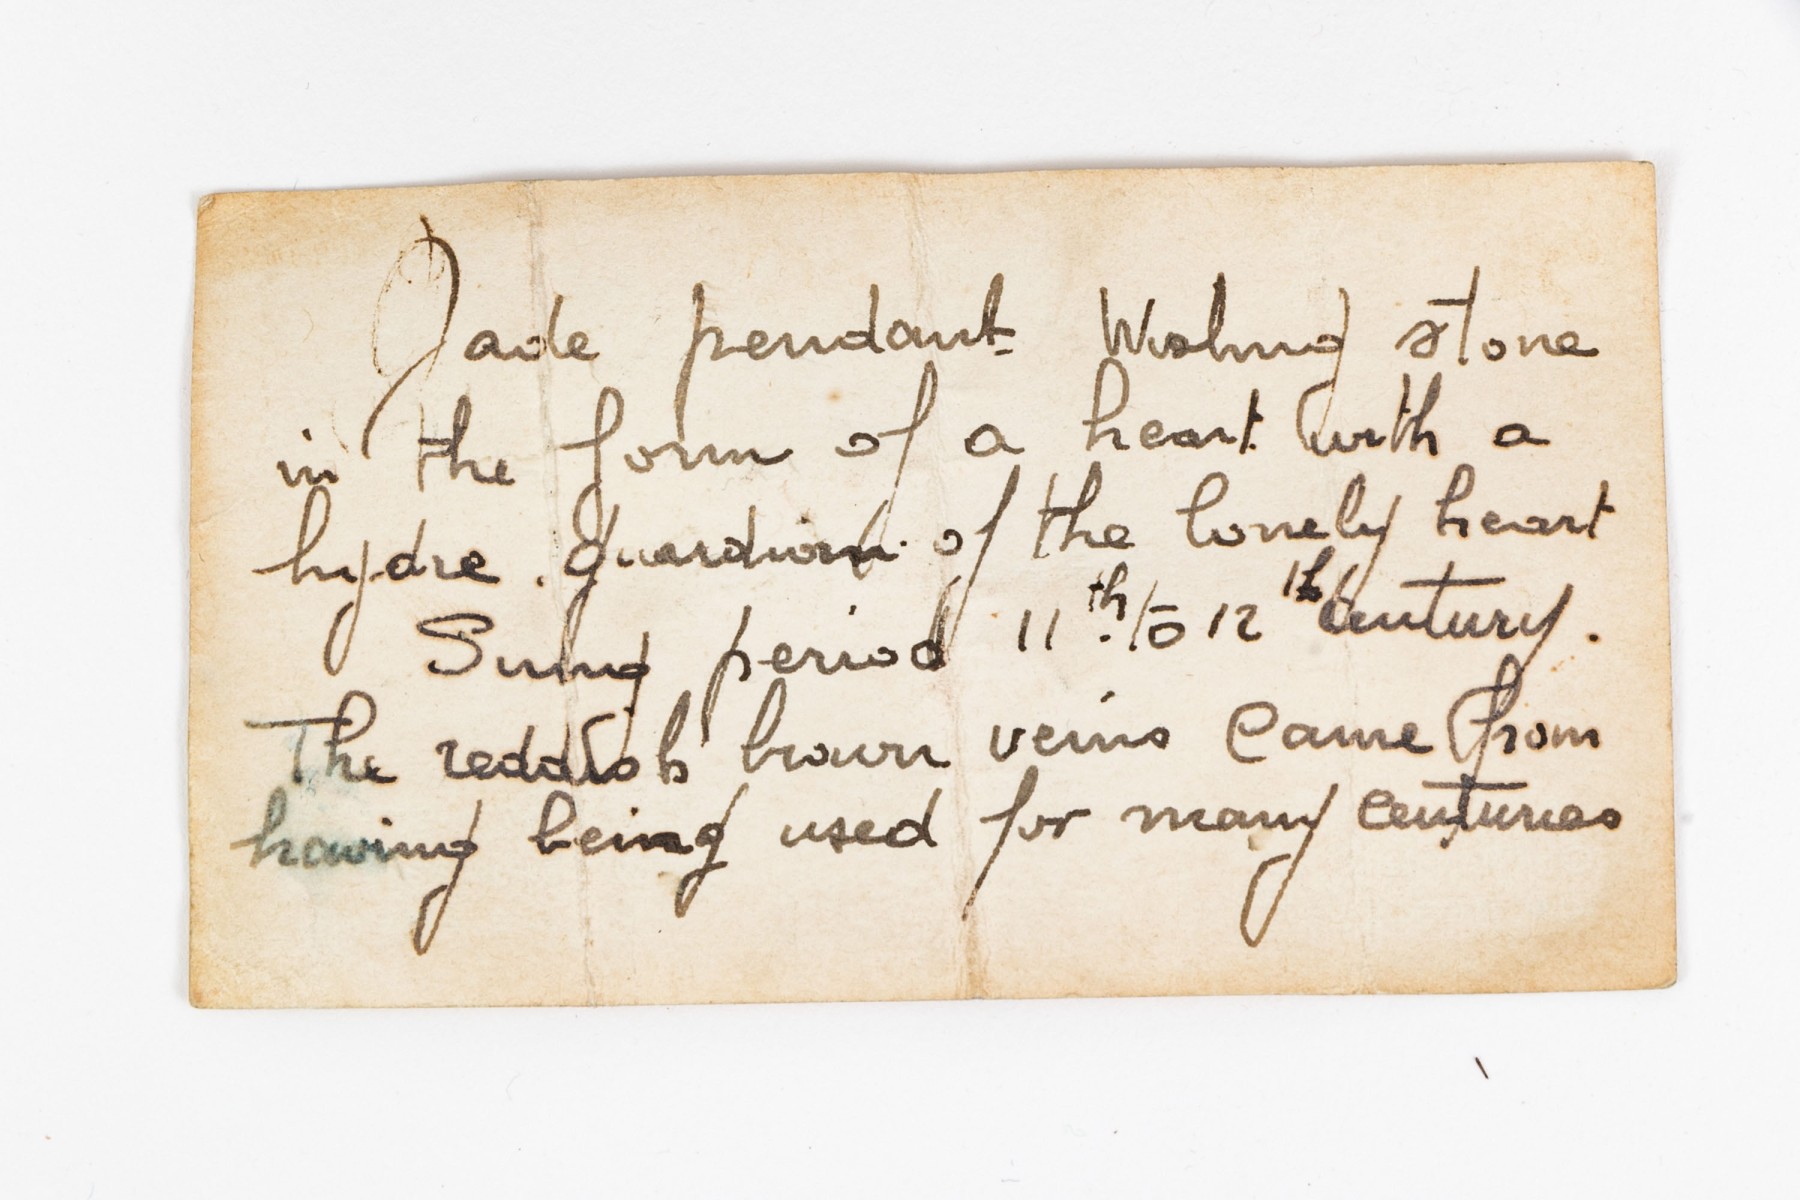 Jade pendant Wishing stone
in the form of a heart with a
hydre. Guardian of the lonely heart
Sung period 11th to 12th century.
The reddish brown veins came from
having being used for many centuries